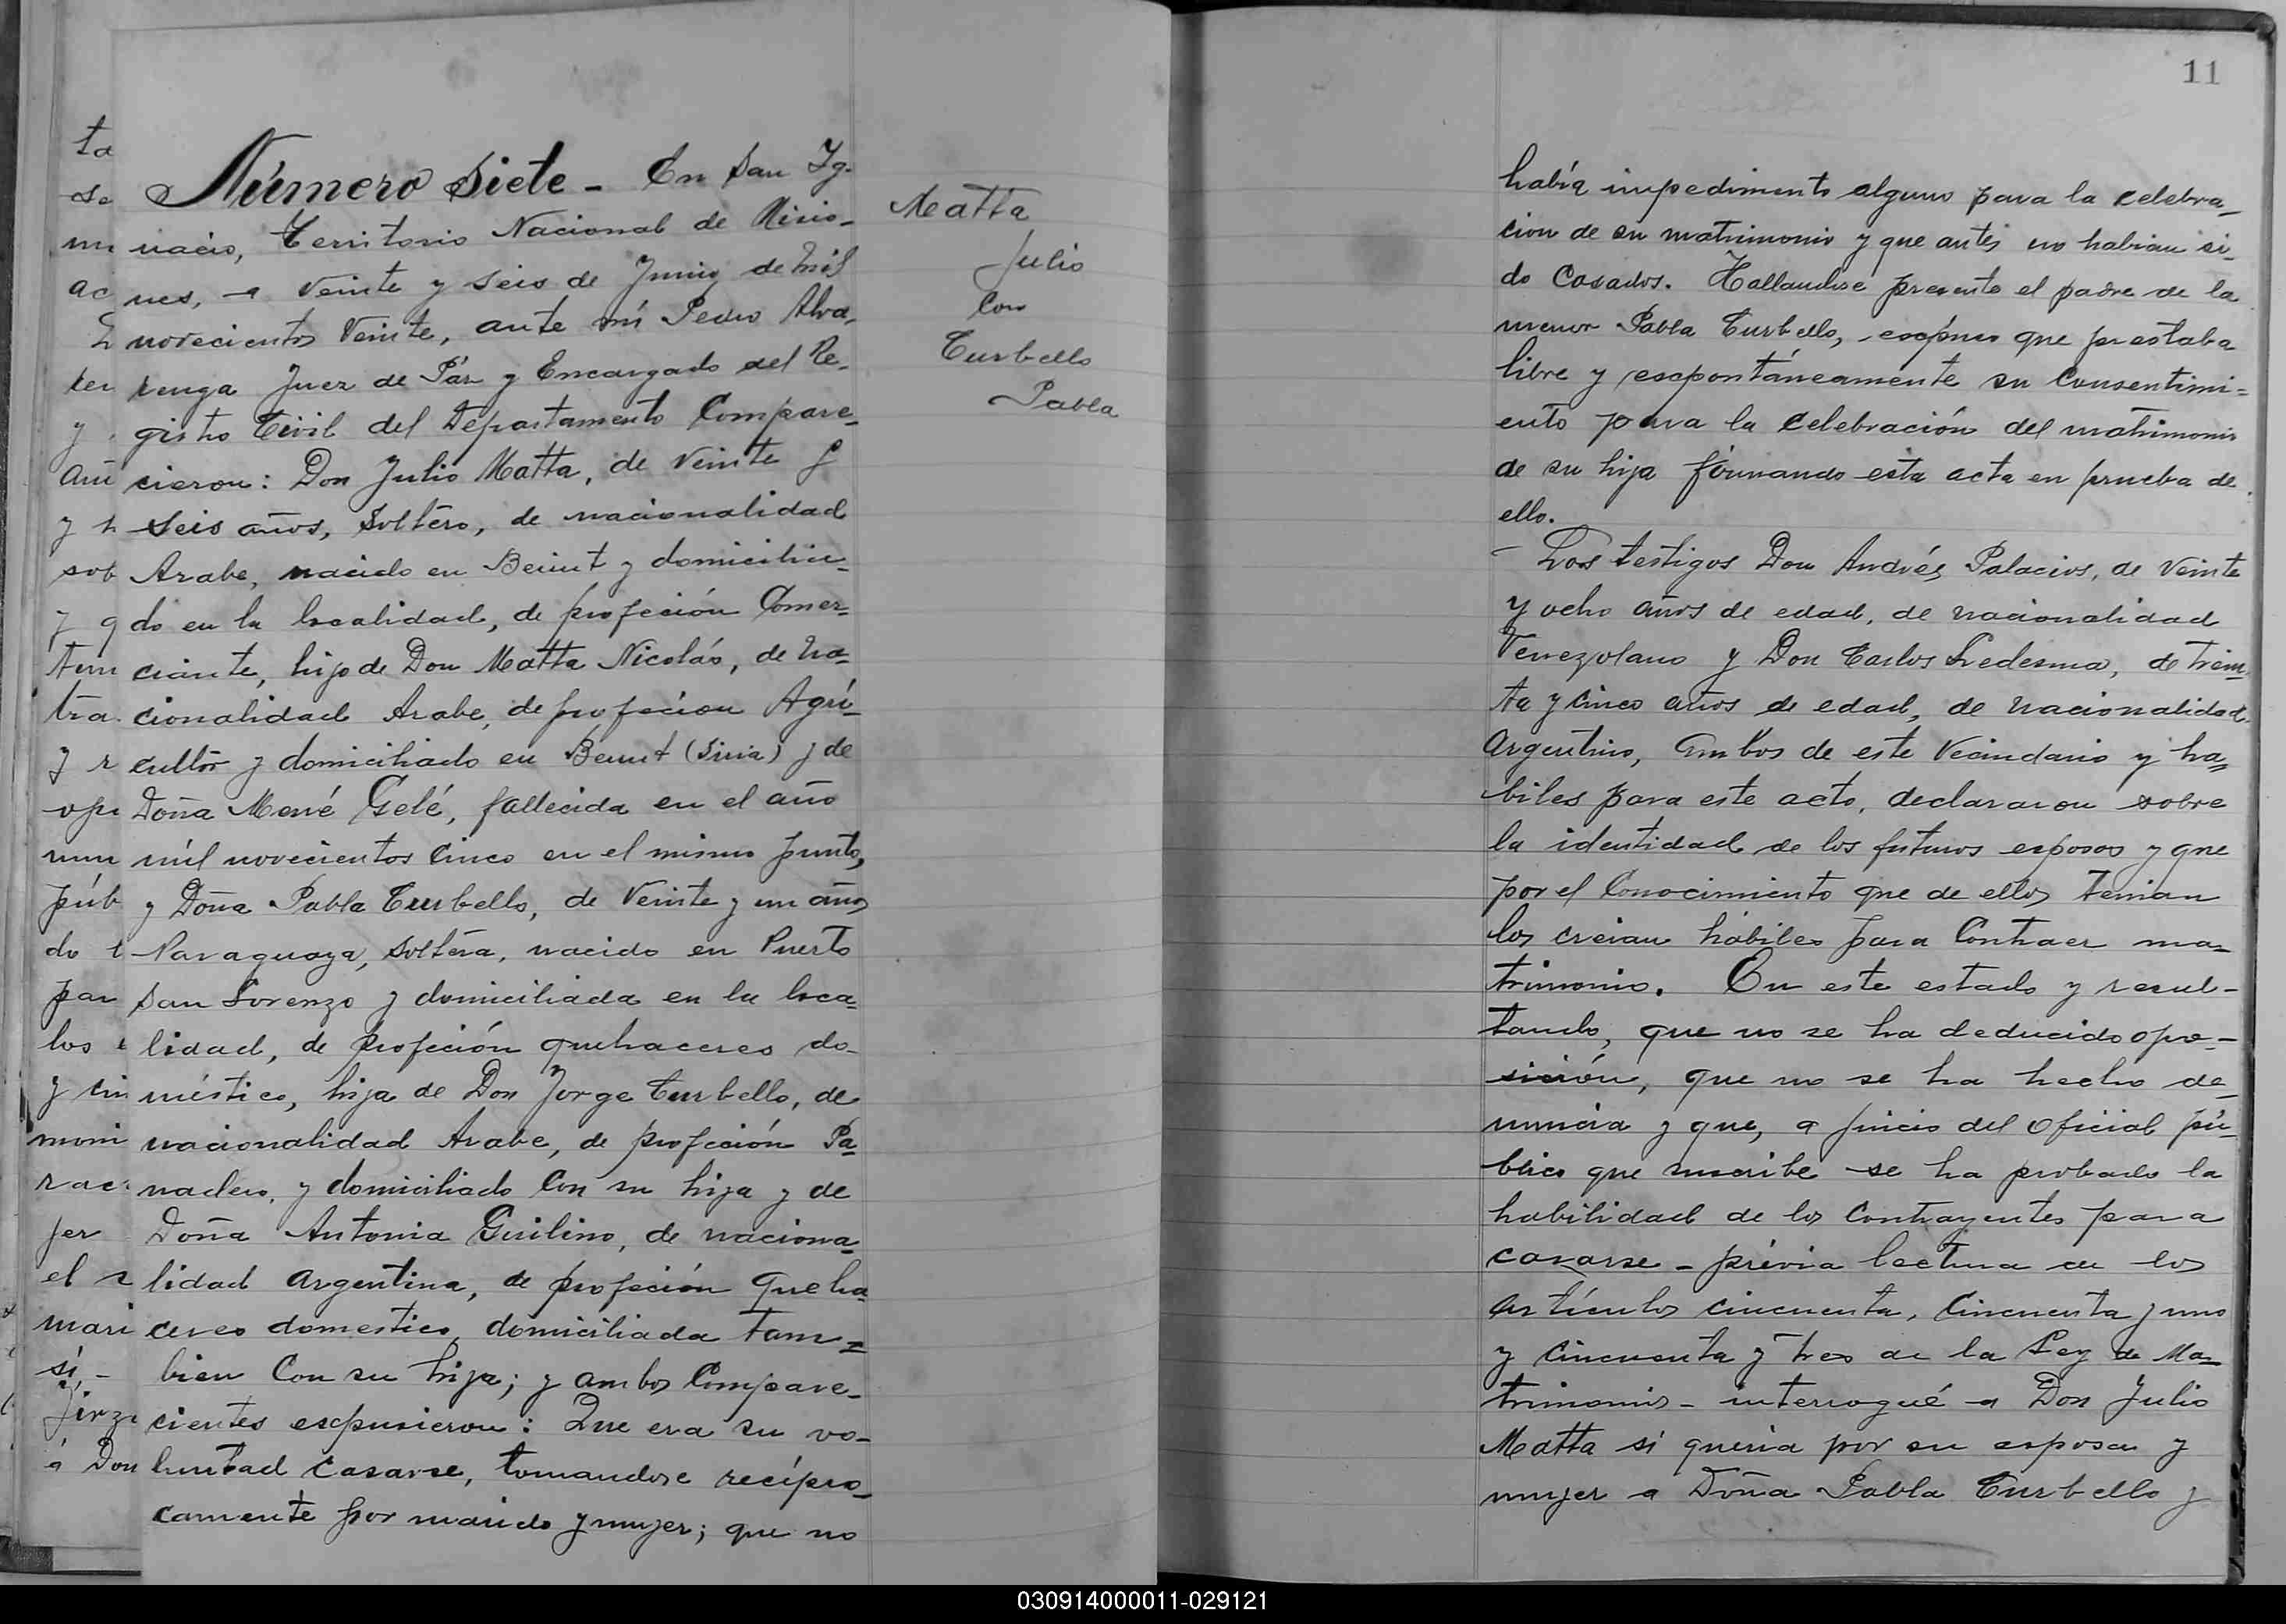 Número Siete - En San Ig-
nacio, Territorio Nacional de Misio-
nes, a veinte y seis de Junio de mil
novecientos veinte, ante mí Pedro Alva-
renga Juez de Páz y Encargado del Re-
gistro Civil del Departamento Compare-
cieron: Don Julio Matta, de veinte y
seis años, soltero, de nacionalidad
Arabe, nacido en Beirut y domicilia-
do en la localidad, de profeción Comer-
ciante, hijo de Don Matta Nicolás, de na-
cionalidad Arabe, de profecion Agri-
cultor y domiciliado en Beirut (Siria) y de
Doña Merré Gelé, fallecida en el año
mil novecientos cinco en el mismo punto,
y Doña Pabla Curbello, de veinte y un años
Paraguaya, soltera, nacido en Puerto
San Lorenzo y domiciliada en la loca-
lidad, de profeción quehaceres do-
méstico, hija de Don Jorge Curbello, de
nacionalidad Arabe, de profeción Pa-
nadero, y domiciliado con su hija y de
Doña Antonia Guilino, de naciona-
lidad argentina, de profeción queha-
ceres domestico, domiciliada tam-
bien con su hija; y ambos Compare-
cientes escpusieron: Que era su vo-
luntad casarse, tomandose recípro-
camente por marido y mujer; que no
Matta
Julio
con
Curbello
Pabla
ta
se
un
ac
y
sob
tra.
y r
opi
púb
do t
par
los
y cin
moni
rac
jer
el
mari
sí,-
á Don
11
había impedimento alguno para la celebra-
cion de su matrimonio y que antes no habian si-
do casados. Hallandose presente el padre de la
menor Pabla Curbello, escpuso que prestaba
libre y escpontáneamente su consentimi-
ento para la celebración del matrimonio
de su hija firmando esta acta en prueba de
ello.
- Los testigos Don Andrés Palacios, de veinte
y ocho años de edad, de nacionalidad
Venezolano y Don Carlos Ledesma, de trein-
ta y cinco años de edad, de nacionalidad
argentino, ambos de este vecindario y ha-
biles para este acto, declararon sobre
la identidad de los futuros esposos y que
por el conocimiento que de ellos tenian
los creian hábiles para contraer ma-
trimonio. En este estado y resul-
tando, que no se ha deducido opo-
sición, que no se ha hecho de-
nuncia y que, a juicio del oficial pú-
blico que suscribe se ha probado la
habilidad de los contrayentes para
casarse - prévia lectura de los
artículos cincuenta, cincuenta y uno
y cincuenta y tres de la Ley de Ma-
trimonio - interrogué a Don Julio
Matta si queria por su esposa y
mujer a Doña Pabla Curbello y
030914000011-029121